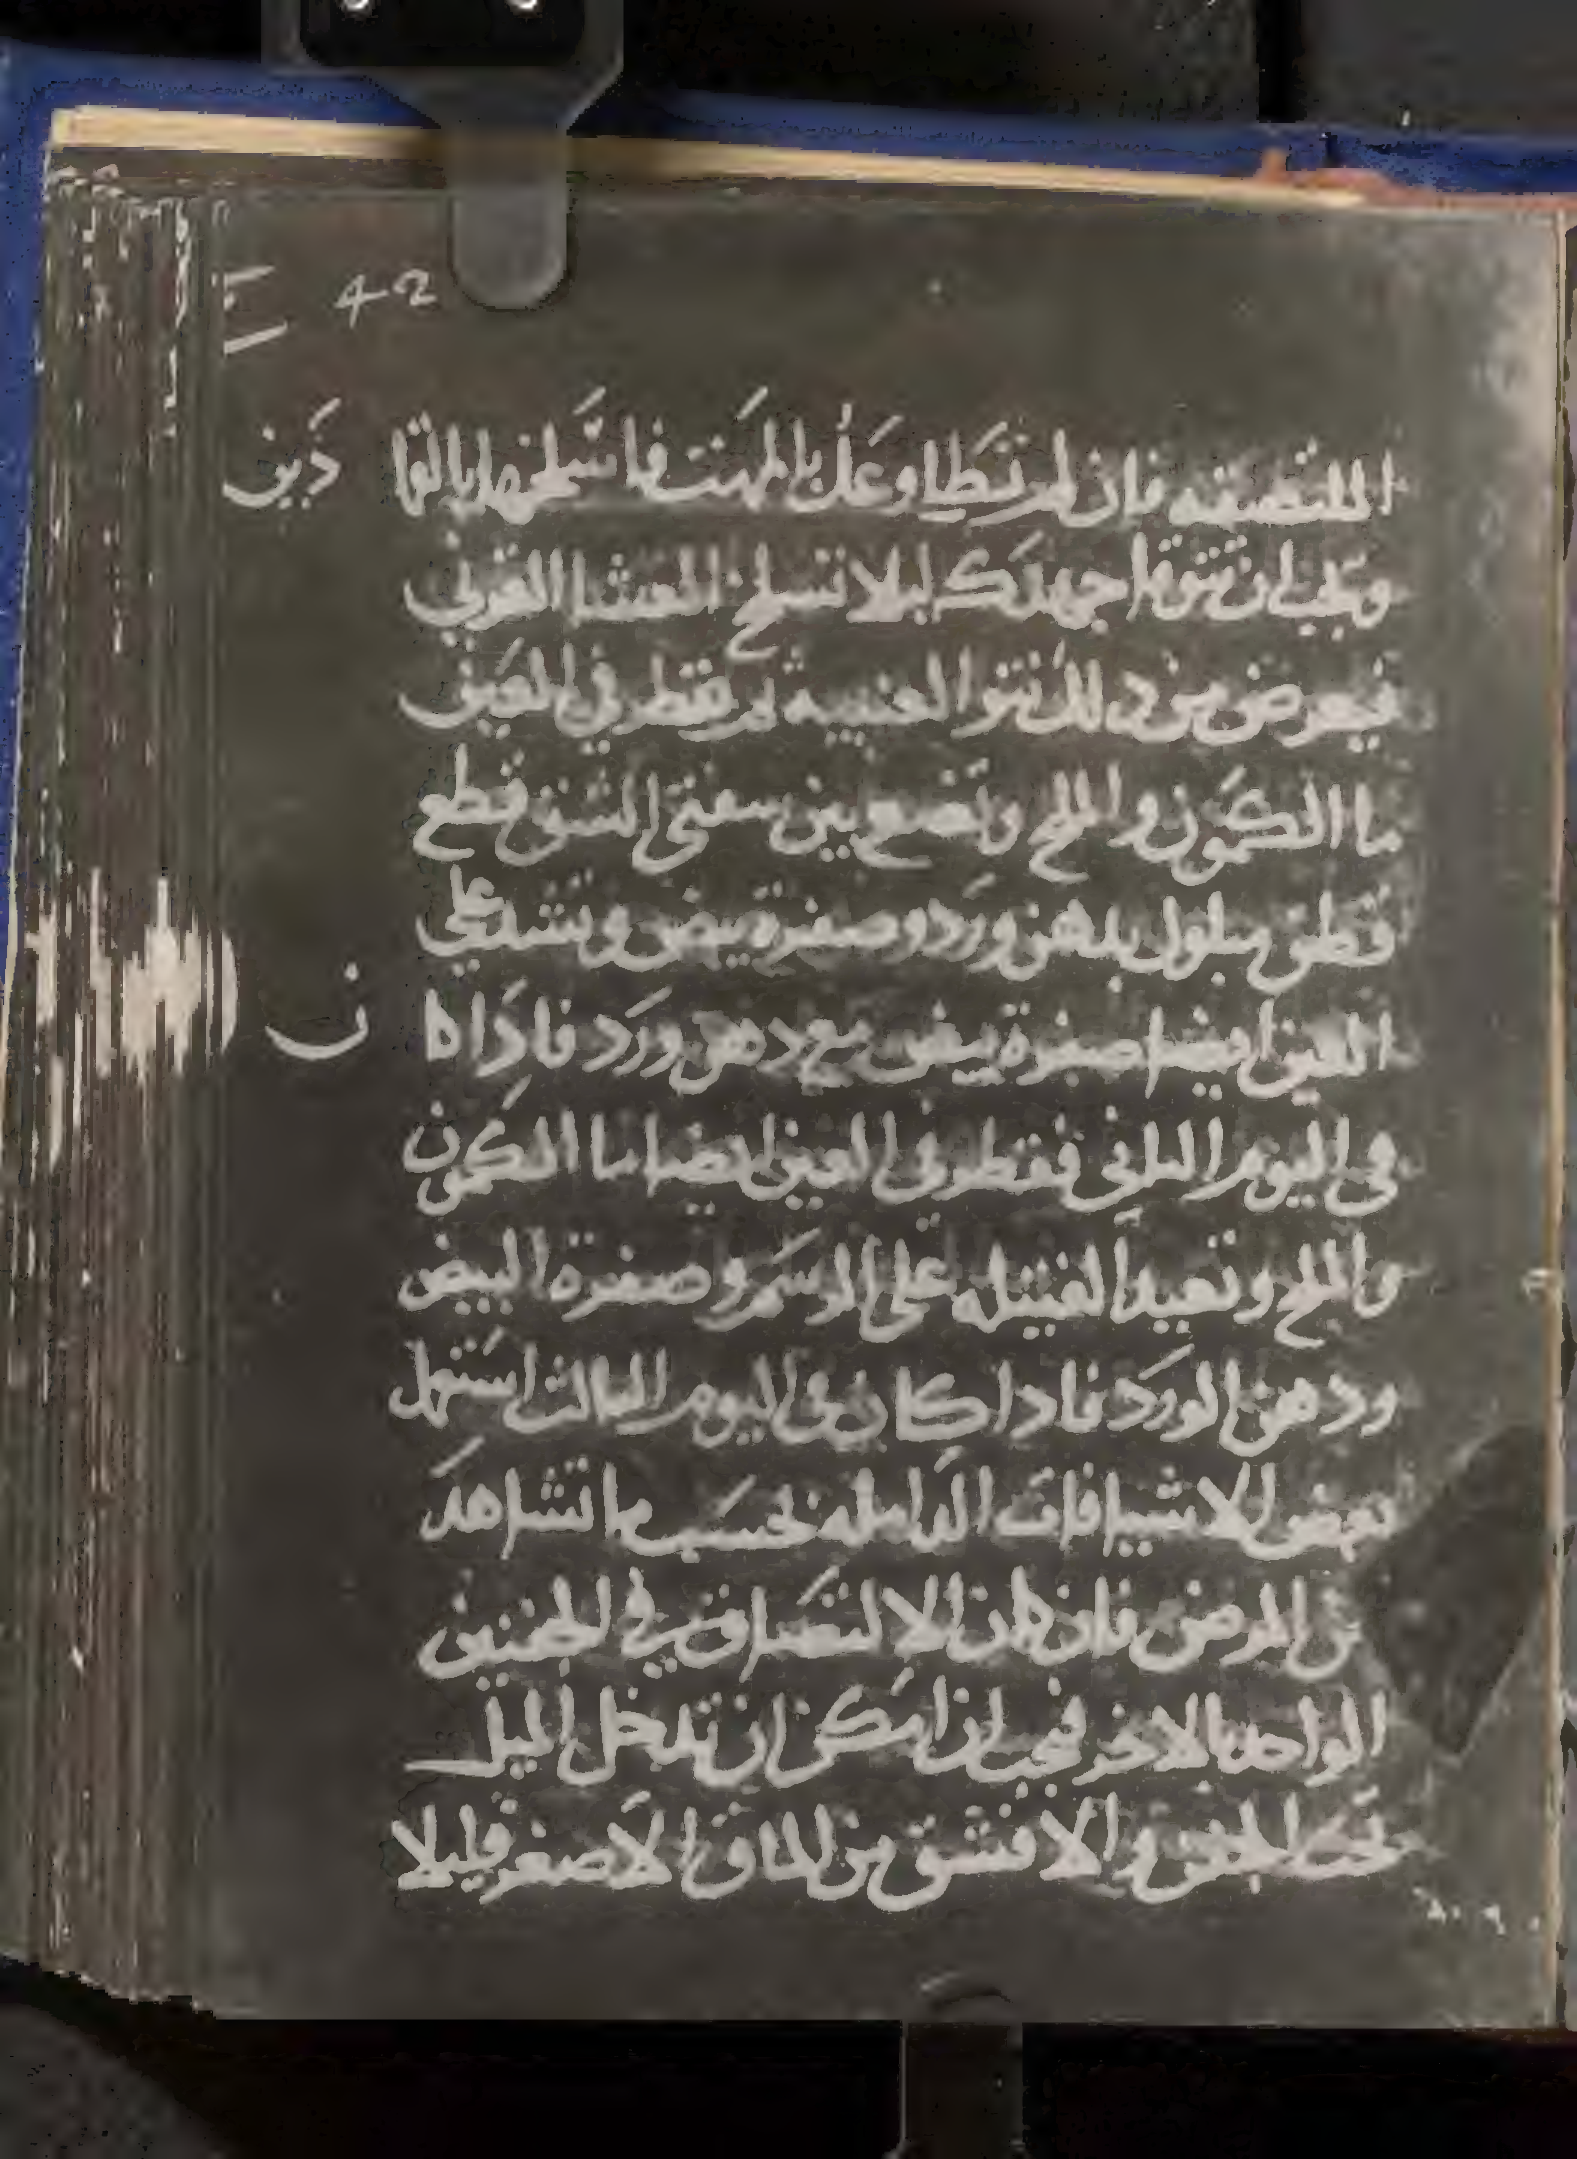 42
الملتصقه فان لم تطاوعك بالمهت فاسلخها بالقما دين
ويجب ان تتوقا جهدك ليلا تسلخ الغشا القرني
فيعرض من دلك نتو العنبيه ثم يقطر في العين
ما الكمون والملح وتضع بين شفتي الشق قطع
قطن مبلول بدهن ورد وصفرة بيض وتشد على
العين ايضا صفرة بيض مع دهن ورد فاذا كا ن
في اليوم الثاني فقطر في العين ايضا ما الكمون
والملح وتعيد الفتيله على الرسم وصفرة البيض
ودهن الورد فاذا كان في اليوم الثالث استعمل
بعض الاشيافات الدامله بحسب ما تشاهد
من المرض فان كان الالتصاق في الجفنين
الواحد بالاخر فيجب ان امكن ان تدخل الميل
تحت الجفن والا فشق من الماق الاصغر قليلا